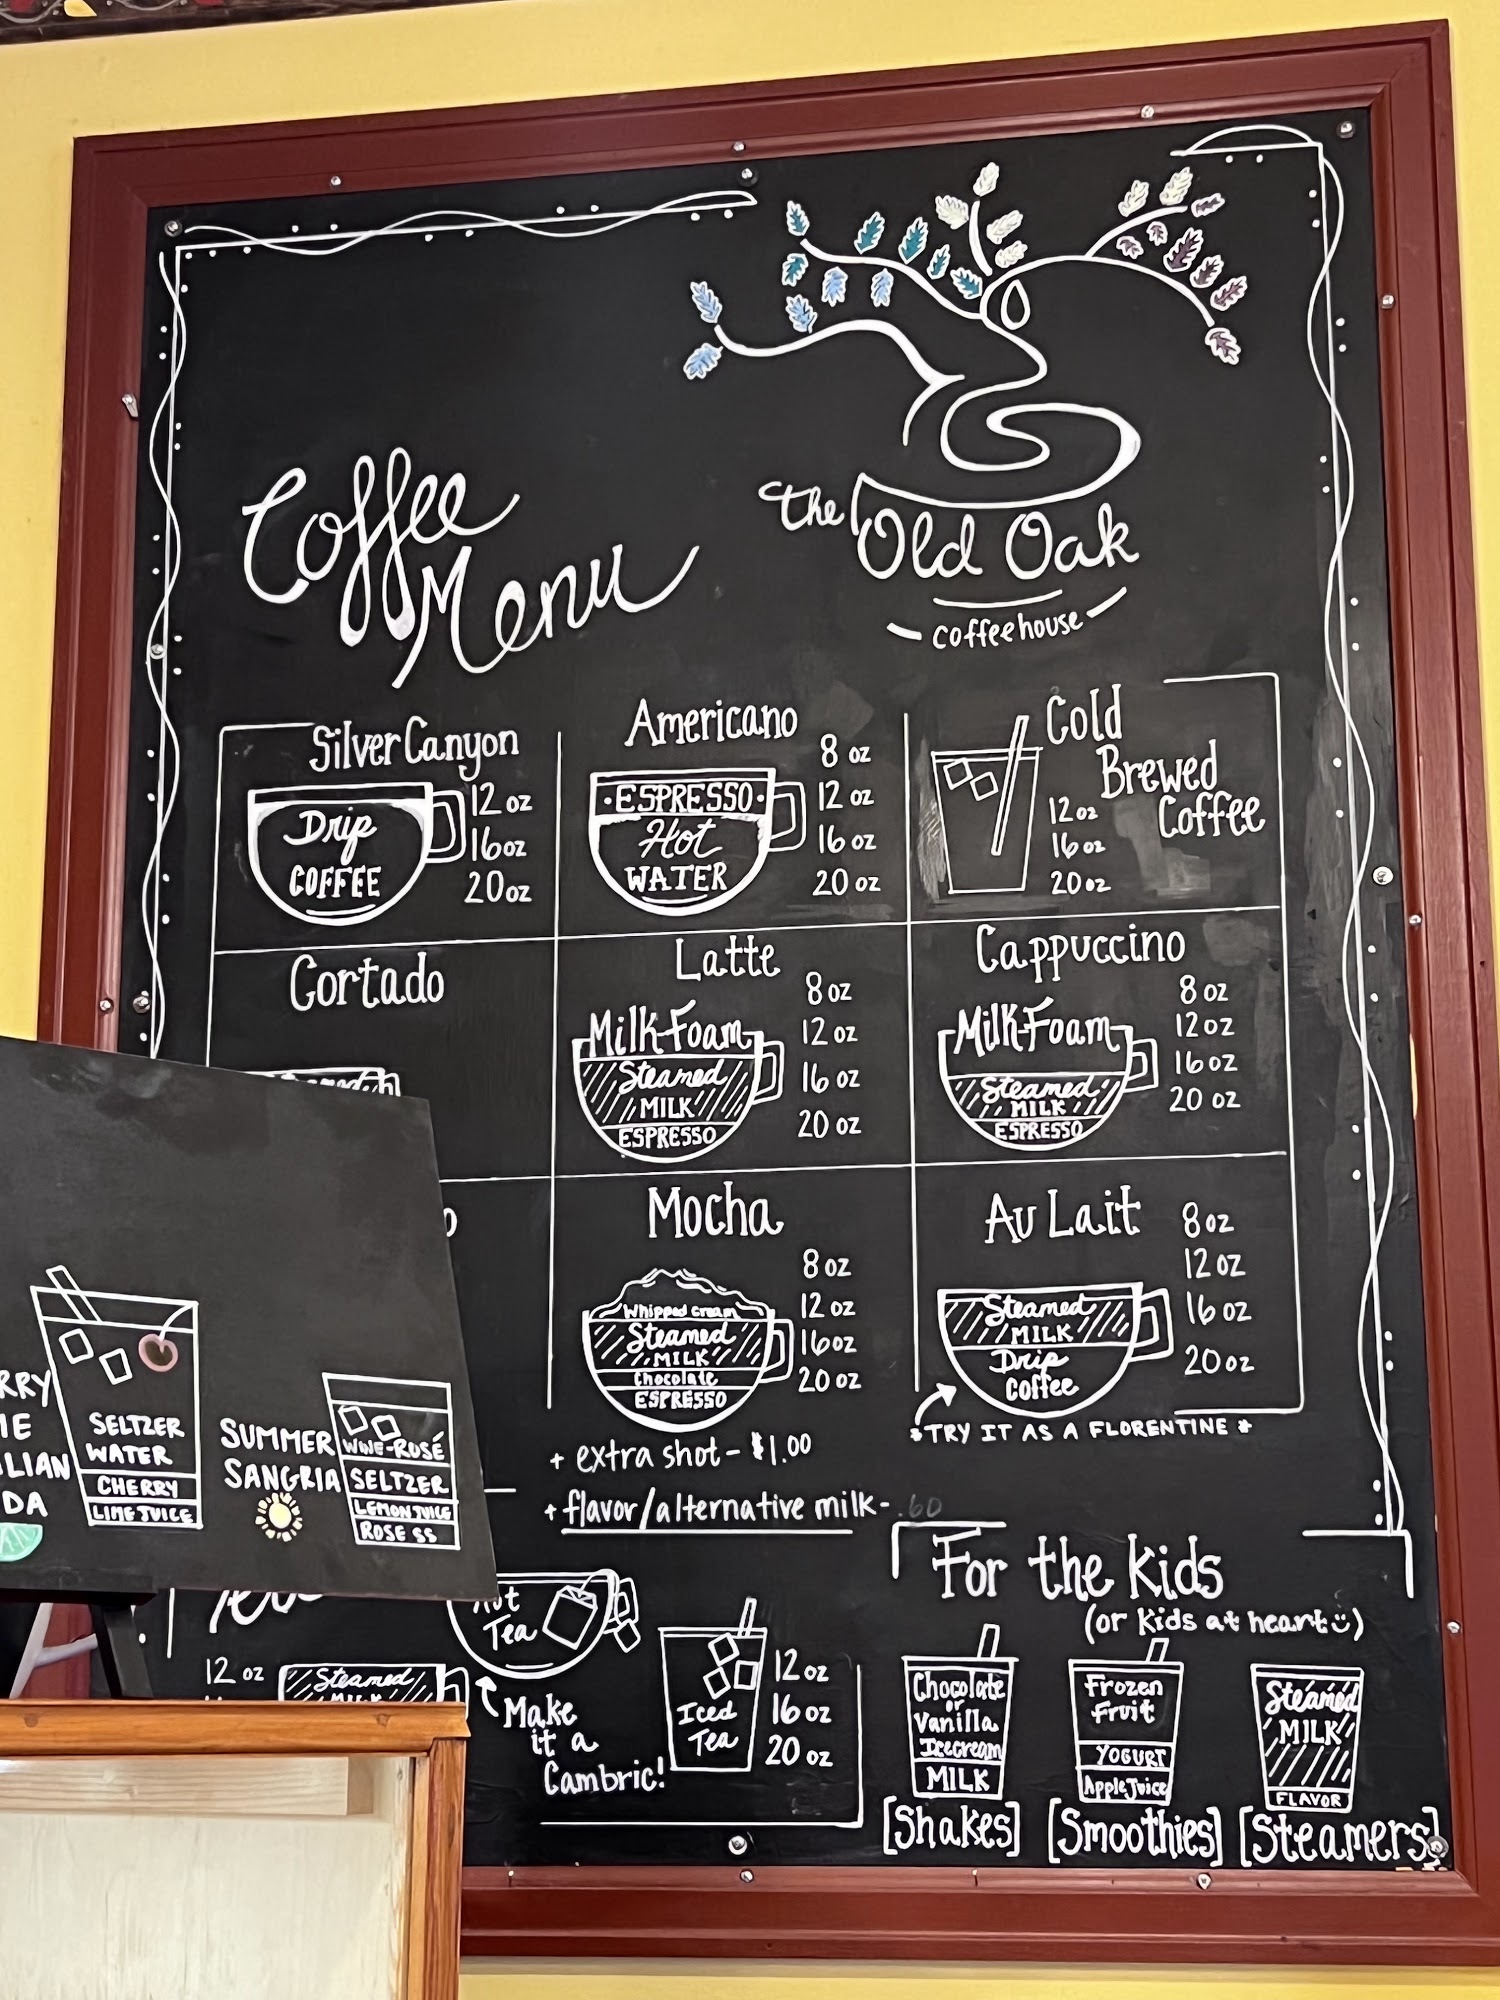 Coffee
Menu
the Old Oak
coffeehouse
Silver Canyon
Drip
COFFEE
12 oz
16 oz
20 oz
Americano
• ESPRESSO •
Hot
WATER
8 oz
12 oz
16 oz
20 oz
Cold
Brewed
Coffee
12 oz
16 oz
20 oz
Cortado
Latte
Milk Foam
Steamed
MILK
ESPRESSO
8 oz
12 oz
16 oz
20 oz
Cappuccino
Milk Foam
Steamed
MILK
ESPRESSO
8 oz
12 oz
16 oz
20 oz
Mocha
Whipped Cream
Steamed
MILK
Chocolate
ESPRESSO
8 oz
12 oz
16 oz
20 oz
Au Lait
Steamed
MILK
Drip
Coffee
8 oz
12 oz
16 oz
20 oz
*TRY IT AS A FLORENTINE*
+ extra shot - $1.00
+ flavor/alternative milk - .60
SELTZER
WATER
CHERRY
LIME JUICE
SUMMER
SANGRIA
WINE-ROSÉ
SELTZER
LEMON JUICE
ROSE SS
12 oz
Steamed
MILK
Hot
Tea
Make
it a
Cambric!
Iced
Tea
12 oz
16 oz
20 oz
For the Kids
(or kids at heart)
Chocolate
or
Vanilla
Icecream
MILK
[Shakes]
Frozen
Fruit
YOGURT
Apple Juice
[Smoothies]
Steamed
MILK
FLAVOR
[Steamers]